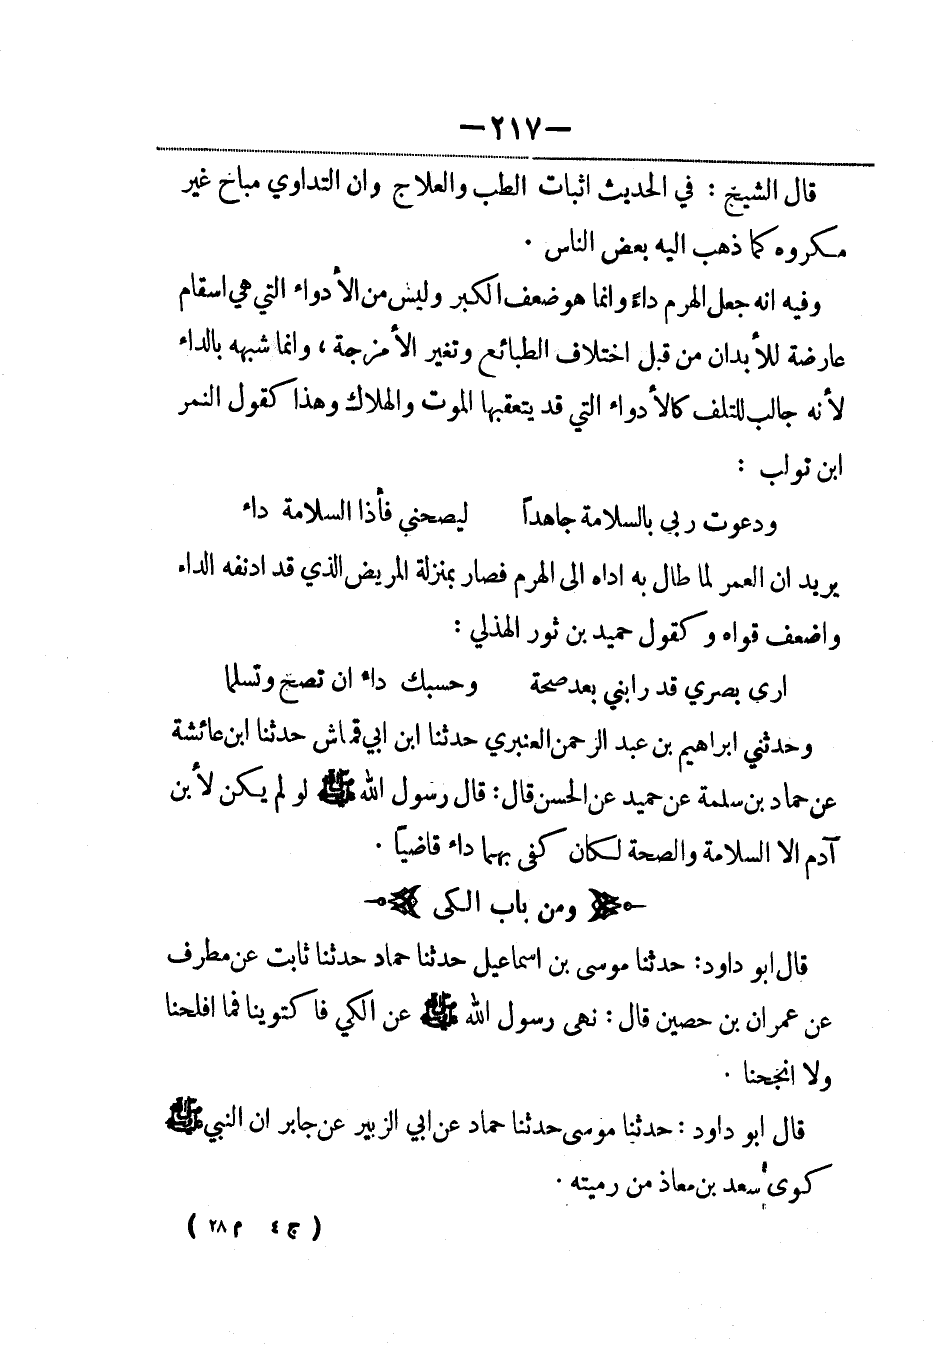 —٢١٧—
قال الشيخ : في الحديث اثبات الطب والعلاج وان التداوي مباح غير
مكروه كما ذهب اليه بعض الناس .
وفيه انه جعل الهرم داءً وانما هو ضعف الكبر وليس من الأدواء التي هي اسقام
عارضة للأبدان من قبل اختلاف الطبائع وتغير الأمزجة ، وانما شبهه بالداء
لأنه جالب للتلف كالأدواء التي قد يتعقبها الموت والهلاك وهذا كقول النمر
ابن تولب :
ودعوت ربي بالسلامة جاهداً ليصحني فأذا السلامة داء
يريد ان العمر لما طال به اداه الى الهرم فصار بمنزلة المريض الذي قد ادنفه الداء
واضعف قواه وكقول حميد بن ثور الهذلي :
ارى بصري قد رابني بعد صحة وحسبك داء ان تصح وتسلما
وحدثني ابراهيم بن عبد الرحمن العنبري حدثنا ابن ابي قماش حدثنا ابن عائشة
عن حماد بن سلمة عن حميد عن الحسن قال : قال رسول الله ﷺ لو لم يكن لأبن
آدم الا السلامة والصحة لكان كفى بهما داء قاضياً .
ومن باب الكى
قال ابو داود : حدثنا موسى بن اسماعيل حدثنا حماد حدثنا ثابت عن مطرف
عن عمران بن حصين قال : نهى رسول الله ﷺ عن الكي فاكتوينا فما افلحنا
ولا انجحنا .
قال ابو داود : حدثنا موسى حدثنا حماد عن ابي الزبير عن جابر ان النبي ﷺ
كوى سعد بن معاذ من رميته .
( ج ٤ م ٢٨ )